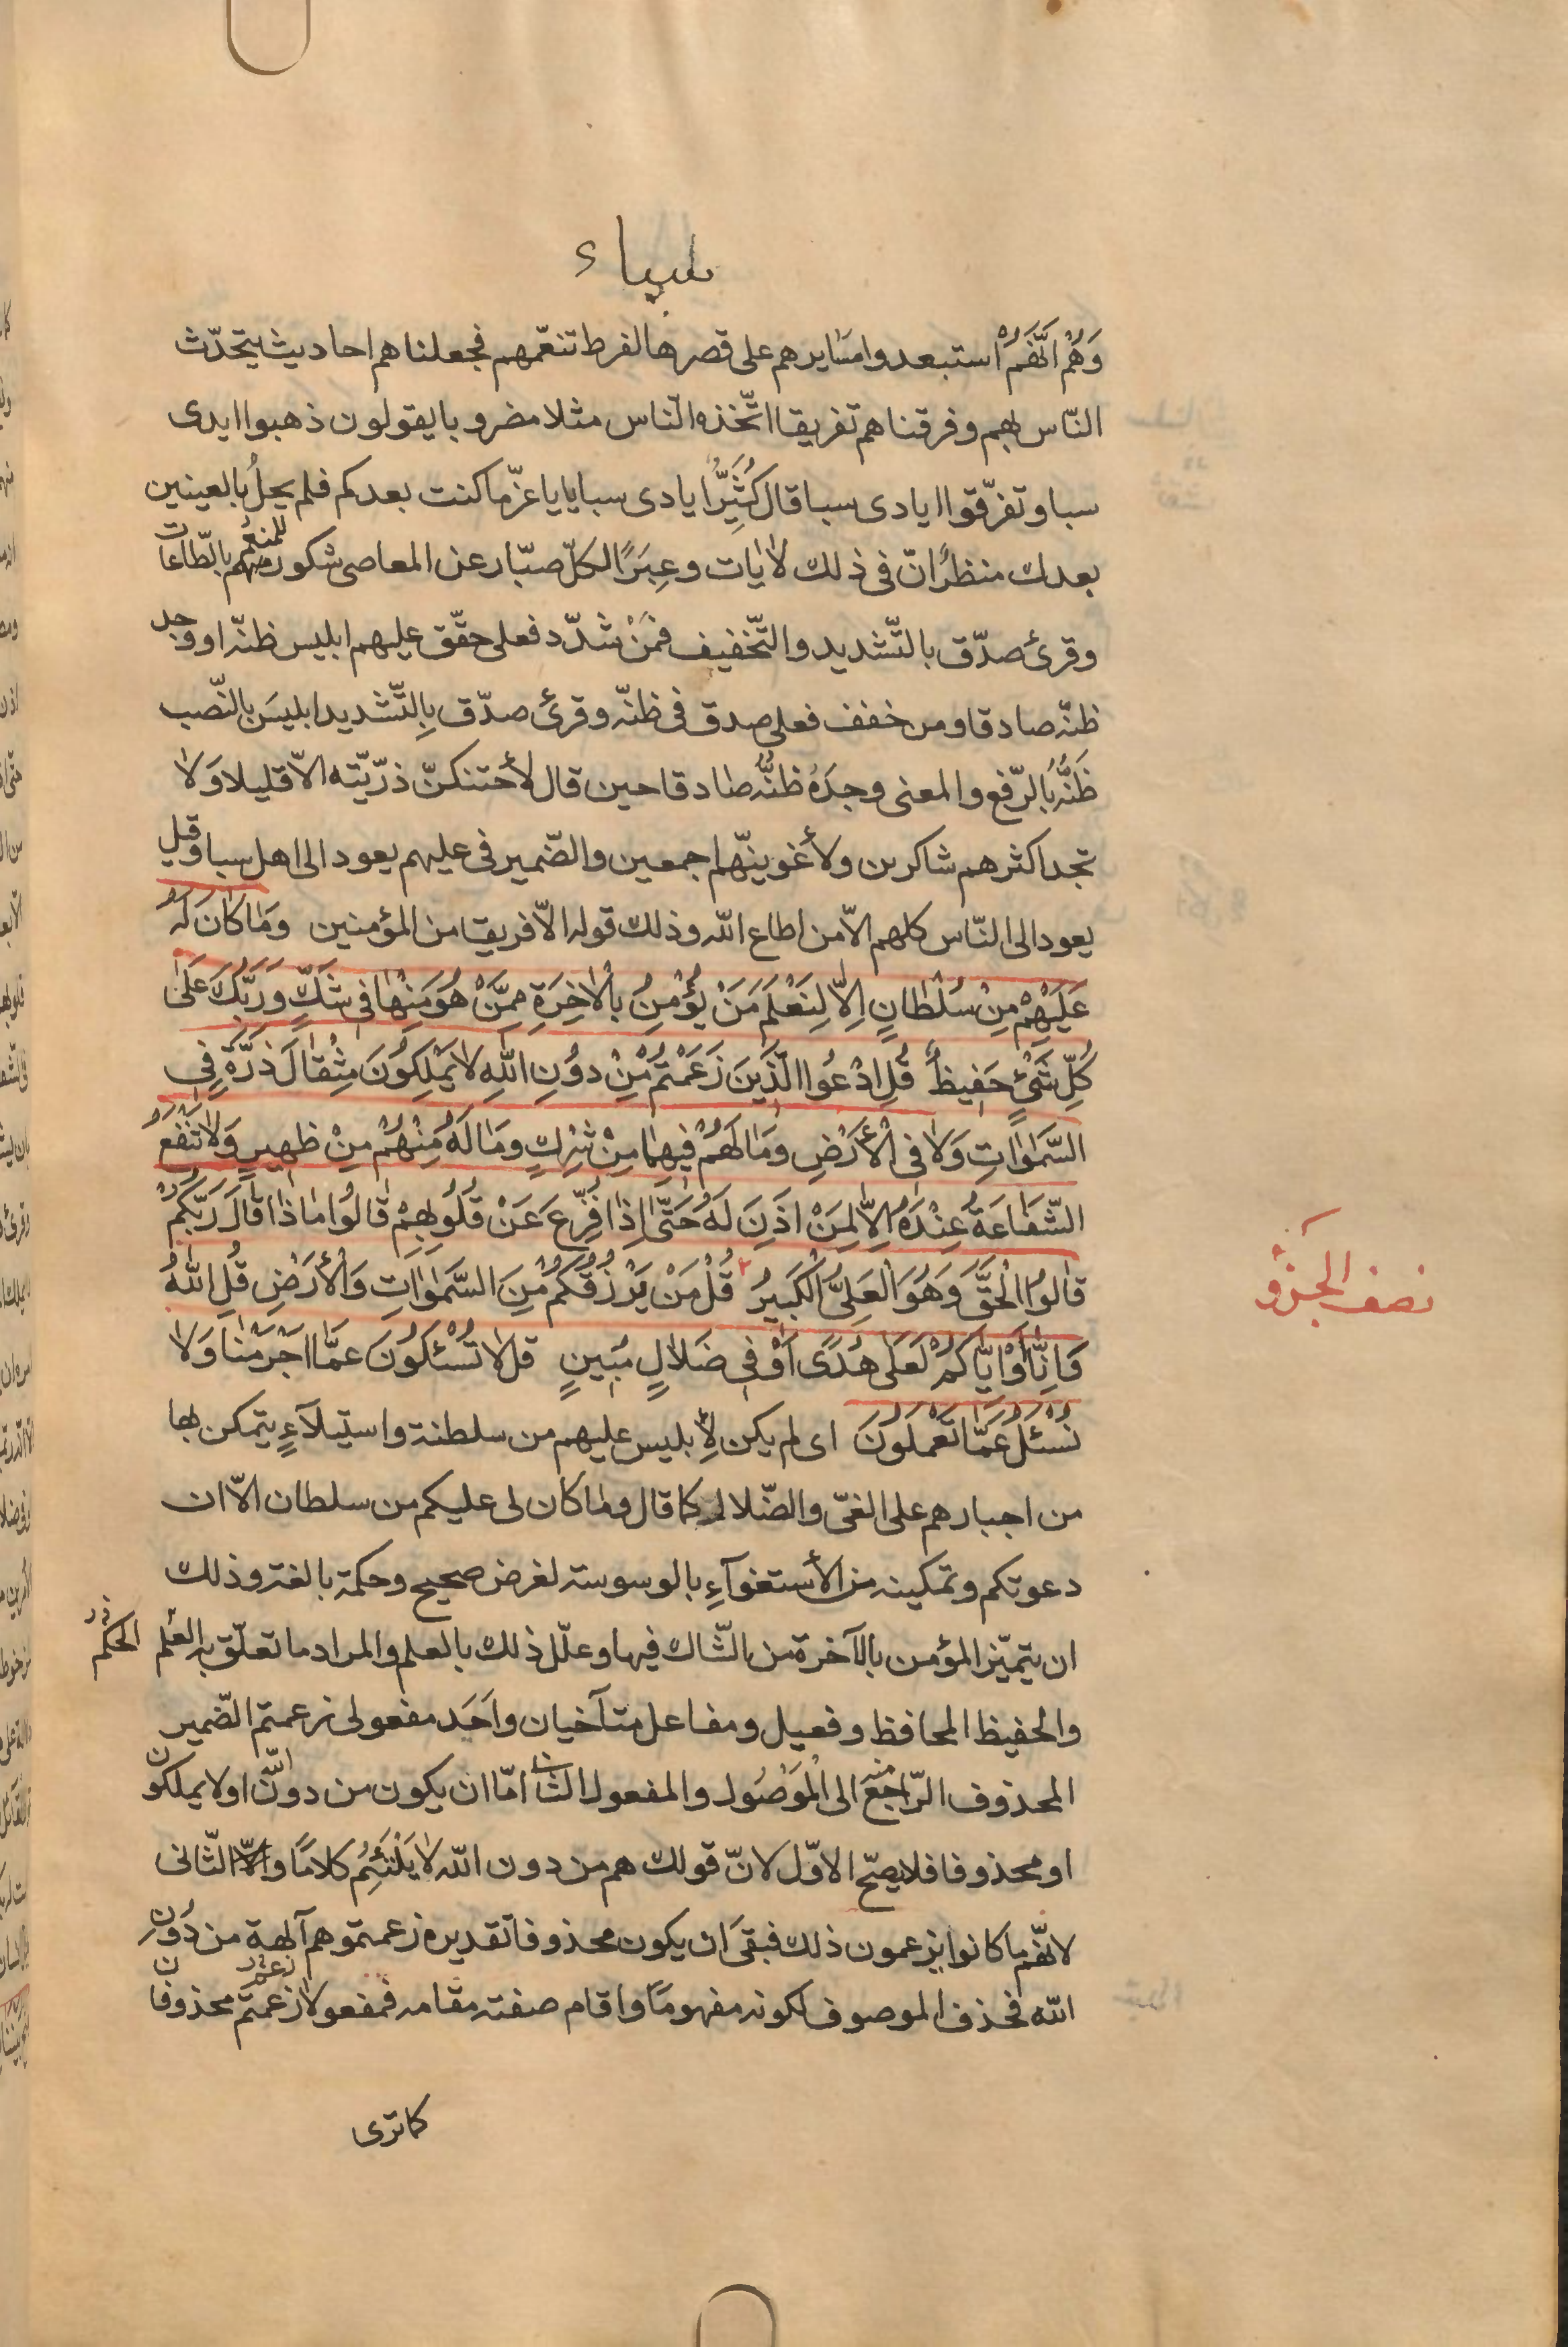 سباء
وَهُمْ اَنَّهُمْ استبعدوا مسَايرهم على قصرها لفرط تنعّمهم فجعلناهم احاديث يتحدّث
النّاس بهم وفرقناهم تفريقا اتّخذه النّاس مثلا مضروبا يقولون ذهبوا ايدى
سبا وتفرّقوا ايادى سبا قال كُثَيِّرُ ايادى سبا يا يا عزّ ما كنت بعدكم فلم يحلُ بالعينين
بعدك منظرٌ انّ فى ذلك لاٰيات وعِبَرًا لكلّ صبّار عن المعاصى شكور للمنعم بالطّاعات
وقرئ صدّق بالتّشديد والتّخفيف فمَنْ شدّد فعلى حقّق عليهم ابليس ظنّه او وجد
ظنّه صادقا ومن خفف فعلى صدق فى ظنّه وقرئ صدّق بِالتّشديد ابليسَ بالنّصب
ظَنُّهُ بُالرّفع والمعنى وجدَهُ ظنُّهُ صادقا حين قال لأحتنكنّ ذرّيّته الاّ قليلا وَلا
تجد اكثرهم شاكرين ولأغوينّهم اجمعين والضّمير فى عليهم يعود الى اهل سبا وقيل
يعود الى النّاس كلهم الاّ من اطاع اللّه وذلك قوله الاّ فريقا من المؤمنين وَمَا كَانَ لَهُ
عَلَيْهِمْ مِنْ سُلْطَانٍ اِلاّ لِنَعْلَمَ مَنْ يُؤْمِنُ بِالْاٰخِرَةِ مِمَّنْ هُوَ مِنْهَا فى شَكٍّ وَرَبُّكَ عَلٰى
كُلِّ شَىْءٍ حَفِيظٌ قُلِ ادْعُوا الَّذِينَ زَعَمْتُمْ مِنْ دُونِ اللّٰهِ لا يَمْلِكُونَ مِثْقَالَ ذَرَّةٍ فِى
السَّمٰوَاتِ وَلَا فى الْأَرْضِ وَمَا لَهُمْ فيهِمَا مِنْ شِرْكٍ وَمَا لَهُ مِنْهُمْ مِنْ ظَهِيرٍ وَلَا تَنْفَعُ
الشَّفَاعَةُ عِنْدَهُ اِلاّ لِمَنْ اَذِنَ لَهُ حَتّٰى اِذَا فُزِّعَ عَنْ قُلُوبِهِمْ قَالُوا مَاذَا قَالَ رَبُّكُمْ
قَالُوا الْحَقَّ وَهُوَ الْعَلِىُّ الْكَبِيرُ قُلْ مَنْ يَرْزُقُكُمْ مِنَ السَّمٰوَاتِ وَالْأَرْضِ قُلِ اللّٰهُ
وَاِنَّا اَوْ اِيَّاكُمْ لَعَلٰى هُدًى اَوْ فى ضَلَالٍ مُبِينٍ قل لا تُسْئَلُونَ عَمَّا اَجْرَمْنَا وَلَا
نُسْئَلُ عَمَّا تَعْمَلُونَ اى لم يكن لإبليس عليهم من سلطنة واستيلآءٍ يتمكن بها
من اجبارهم على الغىّ والضّلالة كما قال وما كان لى عليكم من سلطان الاّ ان
دعوتكم وتمكينه من الأستغوآءِ بالوسوسة لغرض صحيح وحكمة بالغة وذلك
ان يتميّز المؤمن بالآخرة من الشّاك فيها وعلّل ذلك بالعلم والمراد ما تعلّق به العلم الحكم
والحفيظ المحافظ وفعيل ومفاعل متآخيان واَحَد مفعولى زعمتم الضّمير
المحذوف الرّاجع منه الى الْمَوْصُول والمفعول الثانى امّا ان يكون من دون اللّه او لا يملكون
او محذوفا فلا يصحّ الاوّل لانّ قولك هم من دون اللّه لا يَلْتَئِمُ كلامًا ولا الثّانى
لانّهم ما كانوا يزعمون ذلك فبقىَ ان يكون محذوفا تقديره زعمتموهم آلهة من دُونِ
اللّه فحذف الموصوف لكونه مفهومًا واقام صفته مقامه فمفعولا زعمتم محذوفان
كما ترى
نصف الجزو